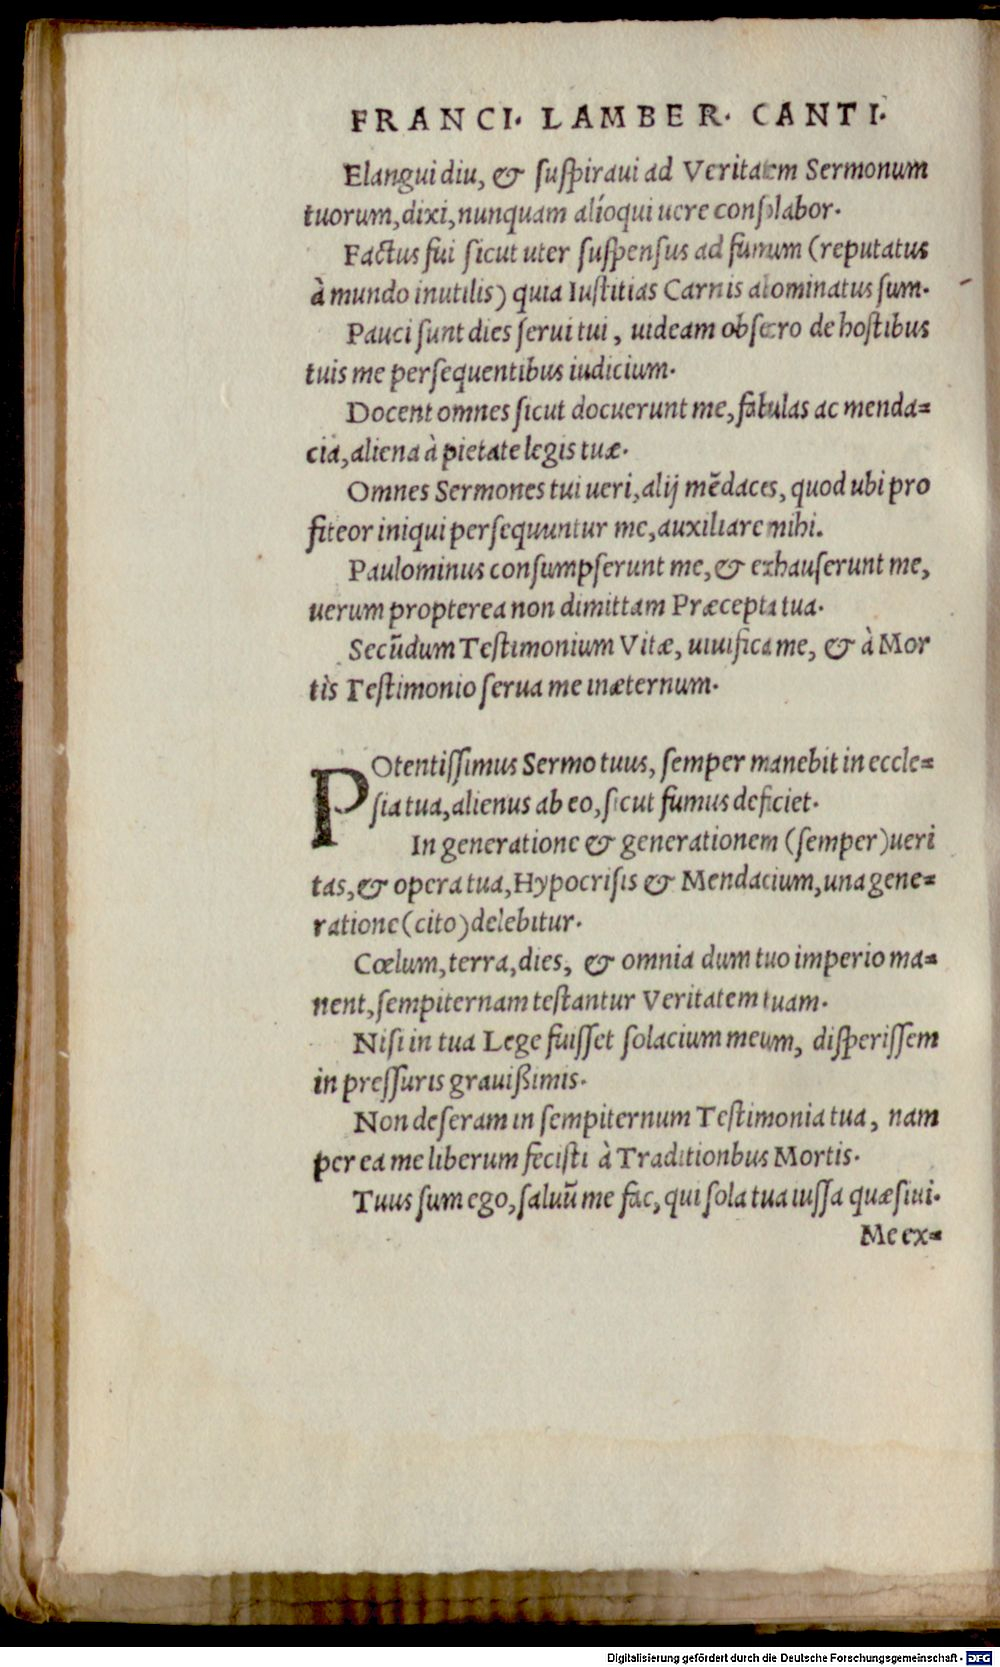 FRANCI. LAMBER. CANTI.
Elangui diu, & suspiraui ad Veritatem Sermonum
tuorum, dixi, nunquam alioqui uere consolabor.
Factus fui sicut uter suspensus ad fumum (reputatus
à mundo inutilis) quia Iustitias Carnis abominatus sum.
Pauci sunt dies serui tui, uideam obsecro de hostibus
tuis me persequentibus iudicium.
Docent omnes sicut docuerunt me, fabulas ac menda=
cia, aliena à pietate legis tuæ.
Omnes Sermones tui ueri, alij mẽdaces, quod ubi pro
fiteor iniqui persequuntur me, auxiliare mihi.
Paulominus consumpserunt me, & exhauserunt me,
uerum propterea non dimittam Præcepta tua.
Secũdum Testimonium Vitæ, uiuifica me, & à Mor
tis Testimonio serua me inæternum.
POtentissimus Sermo tuus, semper manebit in eccle=
sia tua, alienus ab eo, sicut fumus deficiet.
In generatione & generationem (semper) ueri
tas, & opera tua, Hypocrisis & Mendacium, una gene=
ratione (cito) delebitur.
Cœlum, terra, dies, & omnia dum tuo imperio ma=
nent, sempiternam testantur Veritatem tuam.
Nisi in tua Lege fuisset solacium meum, disperissem
in pressuris grauißimis.
Non deseram in sempiternum Testimonia tua, nam
per ea me liberum fecisti à Traditionbus Mortis.
Tuus sum ego, saluũ me fac, qui sola tua iussa quæsiui.
Me ex=
Digitalisierung gefördert durch die Deutsche Forschungsgemeinschaft - DFG